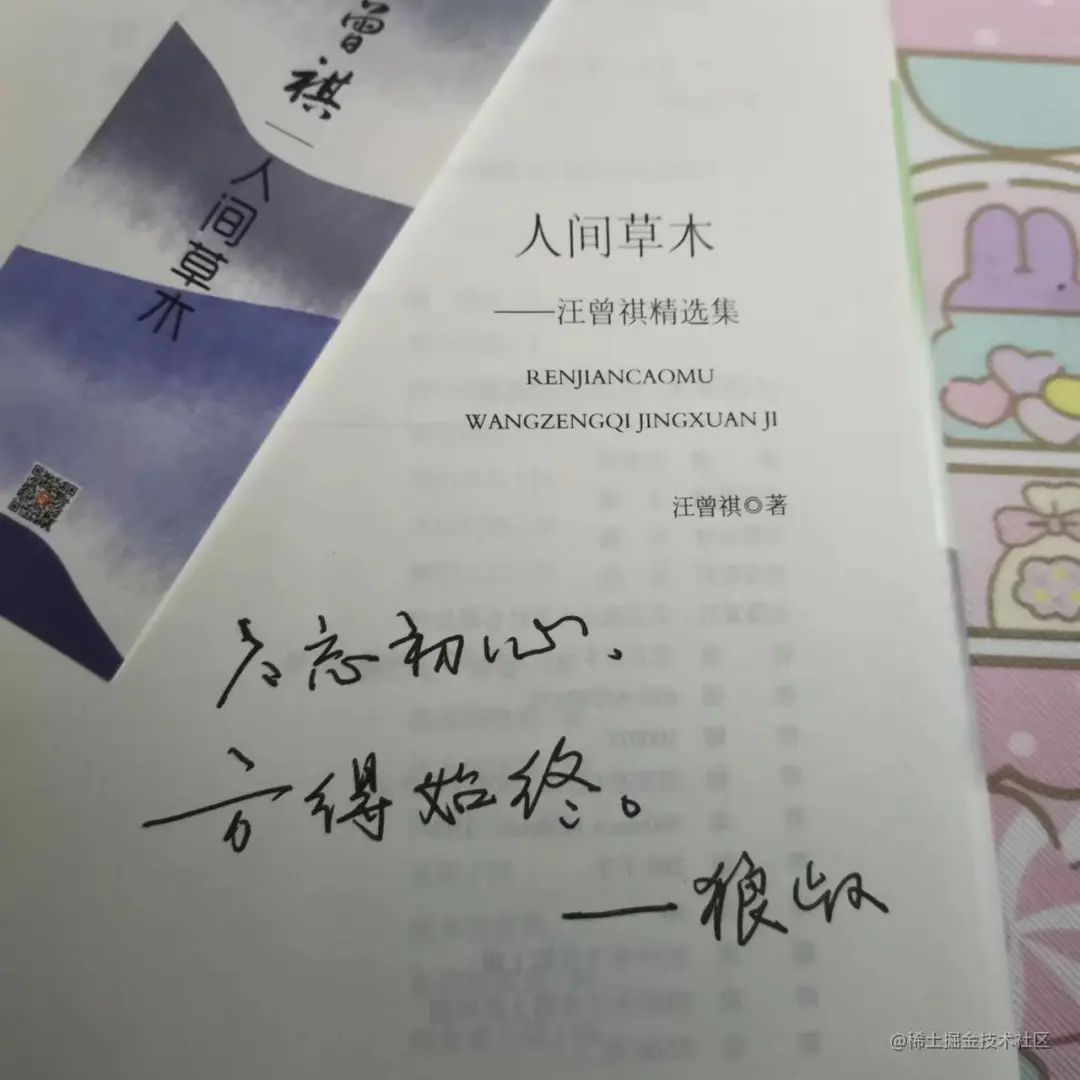 曾祺
人间草木
人间草木
——汪曾祺精选集
RENJIANCAOMU
WANGZENGQI JINGXUAN JI
汪曾祺◎著
忘初心、
方得始终。
—狼叔
@稀土掘金技术社区